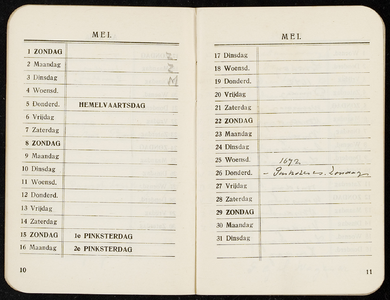 MEI.
1 ZONDAG
2 Maandag
3 Dinsdag
4 Woensd.
5 Donderd. HEMELVAARTSDAG
6 Vrijdag
7 Zaterdag
8 ZONDAG
9 Maandag
10 Dinsdag
11 Woensd.
12 Donderd.
13 Vrijdag
14 Zaterdag
15 ZONDAG 1e PINKSTERDAG
16 Maandag 2e PINKSTERDAG
10
MEI.
17 Dinsdag
18 Woensd.
19 Donderd.
20 Vrijdag
21 Zaterdag
22 ZONDAG
23 Maandag
24 Dinsdag
25 Woensd. 1672
26 Donderd.
27 Vrijdag
28 Zaterdag
29 ZONDAG
30 Maandag
31 Dinsdag
11